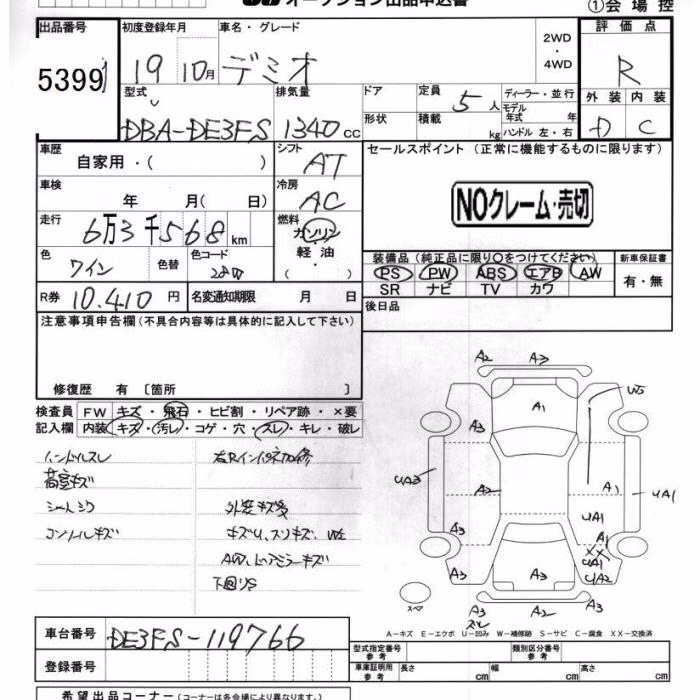 オークション出品申込書
①会場控
出品番号 初度登録年月 車名・グレード 2WD・4WD 評価点
5399 19 10月 デミオ R
型式 排気量 ドア 定員 5人 ディーラー・並行 外装 内装
モデル年式 年
DBA-DE3FS 1340cc 形状 積載 kg ハンドル 左・右 D C
車歴 自家用・( ) シフト AT セールスポイント (正常に機能するものに限ります)
車検 年 月( 日) 冷房 AC NOクレーム・売切
走行 6万3千568km 燃料 ガソリン
軽油
・( )
色 ワイン 色替 色コード 装備品 (純正品に限り○をつけてください) 新車保証書
PS PW ABS エアB AW 有・無
SR ナビ TV カワ
R券 10.410円 名変通知期限 月 日 後日品
注意事項申告欄 (不具合内容等は具体的に記入して下さい)
修復歴 有 〔箇所 〕
検査員 FW キズ・飛石・ヒビ割・リペア跡・×要
記入欄 内装 キズ・汚レ・コゲ・穴・スレ・キレ・破レ
ハンドルスレ
シートシワ 外装キズ多
コンソールキズ
AW、ドアミラーキズ
下回りS
A2 A3
A1 W5
A3
UA3 A2 A1 UA1
UA1
A3 A1
XX
UA1
A3 A3 UA2
スペア A3 スレ A2
A-キズ E-エクボ U-凹み W-補修跡 S-サビ C-腐食 XX-交換済
車台番号 DE3FS-119766 型式指定番号 参考 類別区分番号 参考
登録番号 車庫証明用 参考 長さ cm 幅 cm 高さ cm
希望出品コーナー (コーナーは各会場により異なります)